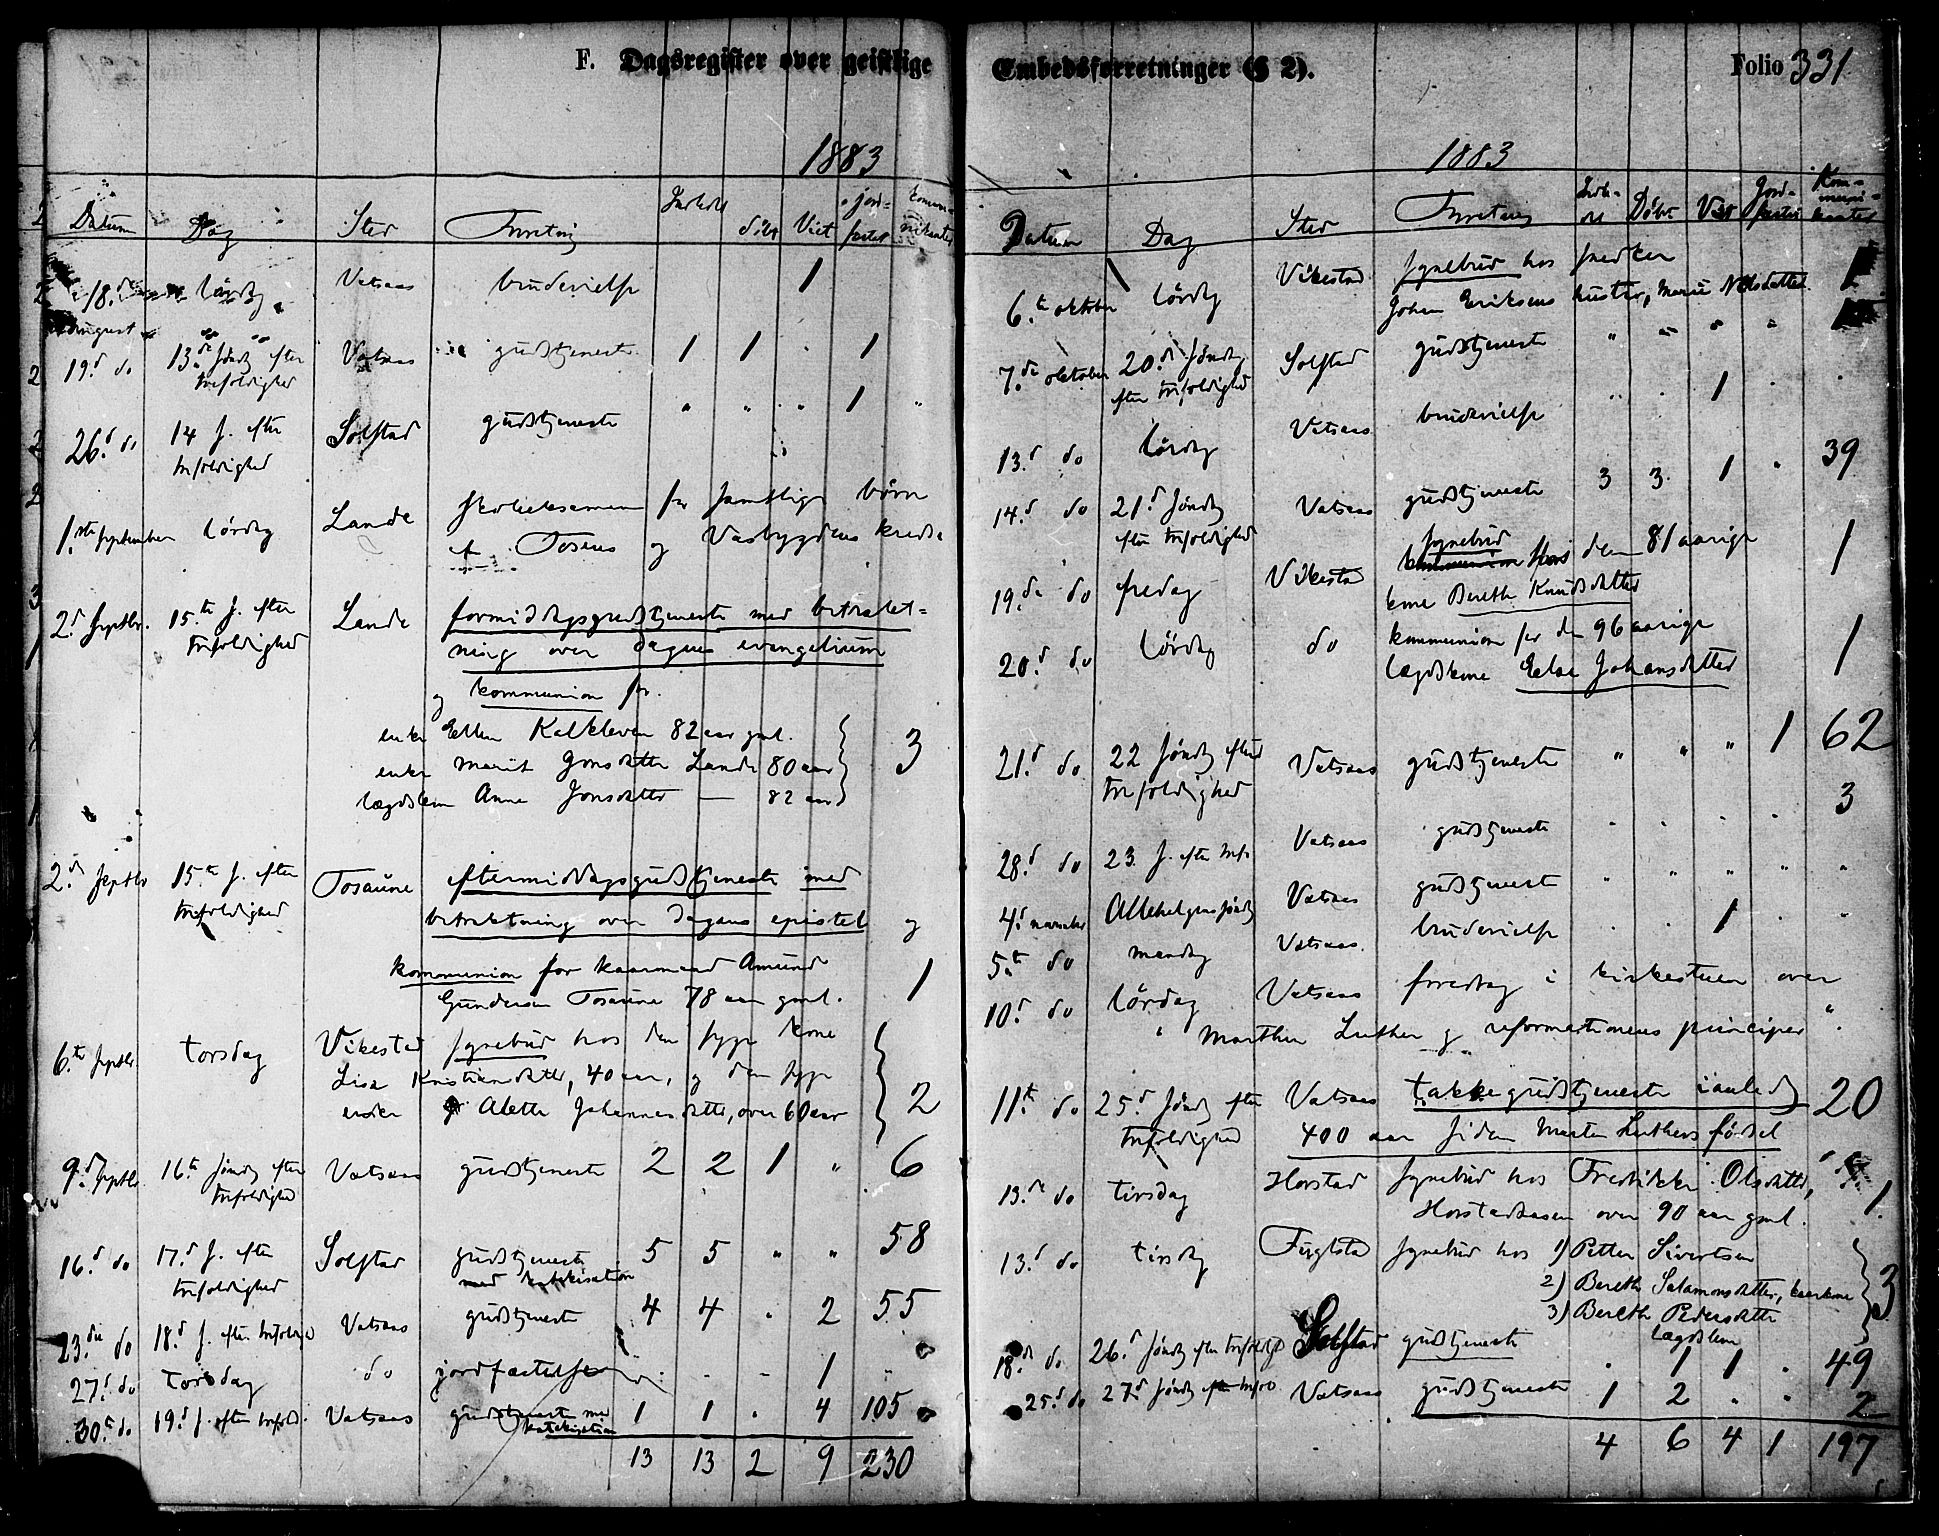 F. Dagsregister over geistlige
1883
Datum Dag Sted Forretning Indledt døbt Viet jordfæstet Kommunikanter
18.d lördag Vatsaas brudevielse 1
august
19.d do 13.de søndag efter Vatsaas gudstjeneste 1 1 . 1
trefoldighed
26.d do 14 s. efter Solstad gudstjeneste " " " 1 "
trefoldighed
1.ste september lördag Lande skoleeksamen for samtlige børn
af Tosens og Vasbygdens kreds.
2.d septbr. 15.te s. efter Lande formiddagsgudstjeneste med betrakt-
trefoldighed ning over dagens evangelium
og kommunion for
enke Ellen Kalkleven 82 aar gml.
enke Marit Jonsdatter Lande 80 aar 3
lægdslem Anne Jonsdatter — 82 aar
2.d septbr 15.te s. efter Tosaune eftermiddagsgudstjeneste med
trefoldighed betraktning over dagens epistel og
kommunion for kaarmand Amund 1
Gundersen Tosaune 78 aar gml.
6.te septbr. torsdag Vikestad sygebud hos den syge kone
Lisa Kristiansdatter, 40 aar, og den syge
enke Aleth Johannesdatter, over 60 aar 2
9.d septbr. 16te søndag efter Vatsaas gudstjeneste 2 2 1 " 6
trefoldighed
16.d do 17.d s. efter Solstad gudstjeneste 5 5 " " 58
trefoldighed med katekisation
23.die do 18.d s. efter trefoldighed Vatsaas gudstjeneste 4 4 . 2 55
27.d do torsdag do jordfæstelse . . . 1
30.te do 19.d s. efter trefold. Vatsaas gudstjeneste med 1 1 . 4 105
katekisation
13 13 2 9 230
Embedsforretninger (§ 2). Folio 331
1883
Datum Dag Sted Forretning Indledt Døbt Viet Jordfæstet Kommunikanter
6.te oktober lördag Vikestad sygebud hos snedker 1
Johan Eriksens hustru, Marie Nilsdatter
7.de oktober 20.d søndag Solstad gudstjeneste " " " "
efter trefoldighed
13.d do lördag Vatsaas brudevielse . . 1 . .
14.d do 21.d søndag Vatsaas gudstjeneste 3 3 1 " 39
efter trefoldighed
19.de do fredag Vikestad sygebud hos den 81 aarige 1
kone Bereth Knudsdatter
20.d do lördag do kommunion for den 96 aarige 1
lægdskone Elae Johansdatter
21.d do 22 søndag efter Vatsaas gudstjeneste " " " 1 62
trefoldighed
28.d do 23. s. efter tref. Vatsaas gudstjeneste . . . . 3
4.d november Allehelgenssøndag Vatsaas gudstjeneste " " " " "
5.te do mandag Vatsaas. brudevielse . . 1 . "
10.d do lördag Vatsaas foredrag i kirkestuen over
Morthen Luther og reformationens principer "
11.te do 25.d søndag efter Vatsaas takkegudstjeneste i anledg 20
trefoldighed 400 aar siden Morten Luthers fødsel
13.de do tirsdag Horstad sygebud hos Fredrikke Olsdatter,
Horstadaasen over 90 aar gml. 1.
13.d do tirsdag Fuglstad sygebud hos 1) Petter Sivertsen
2) Bereth Salamonsdatter, kaarkone 3
3) Bereth Pedersdatter
lægdslem
18.de do 26.d søndag efter trefoldighed Solstad gudstjeneste . 1 1 . 49
25.d do 27d søndag efter trefold Vatsaas gudstjeneste 1 2 . . 2
4 6 4 1 197